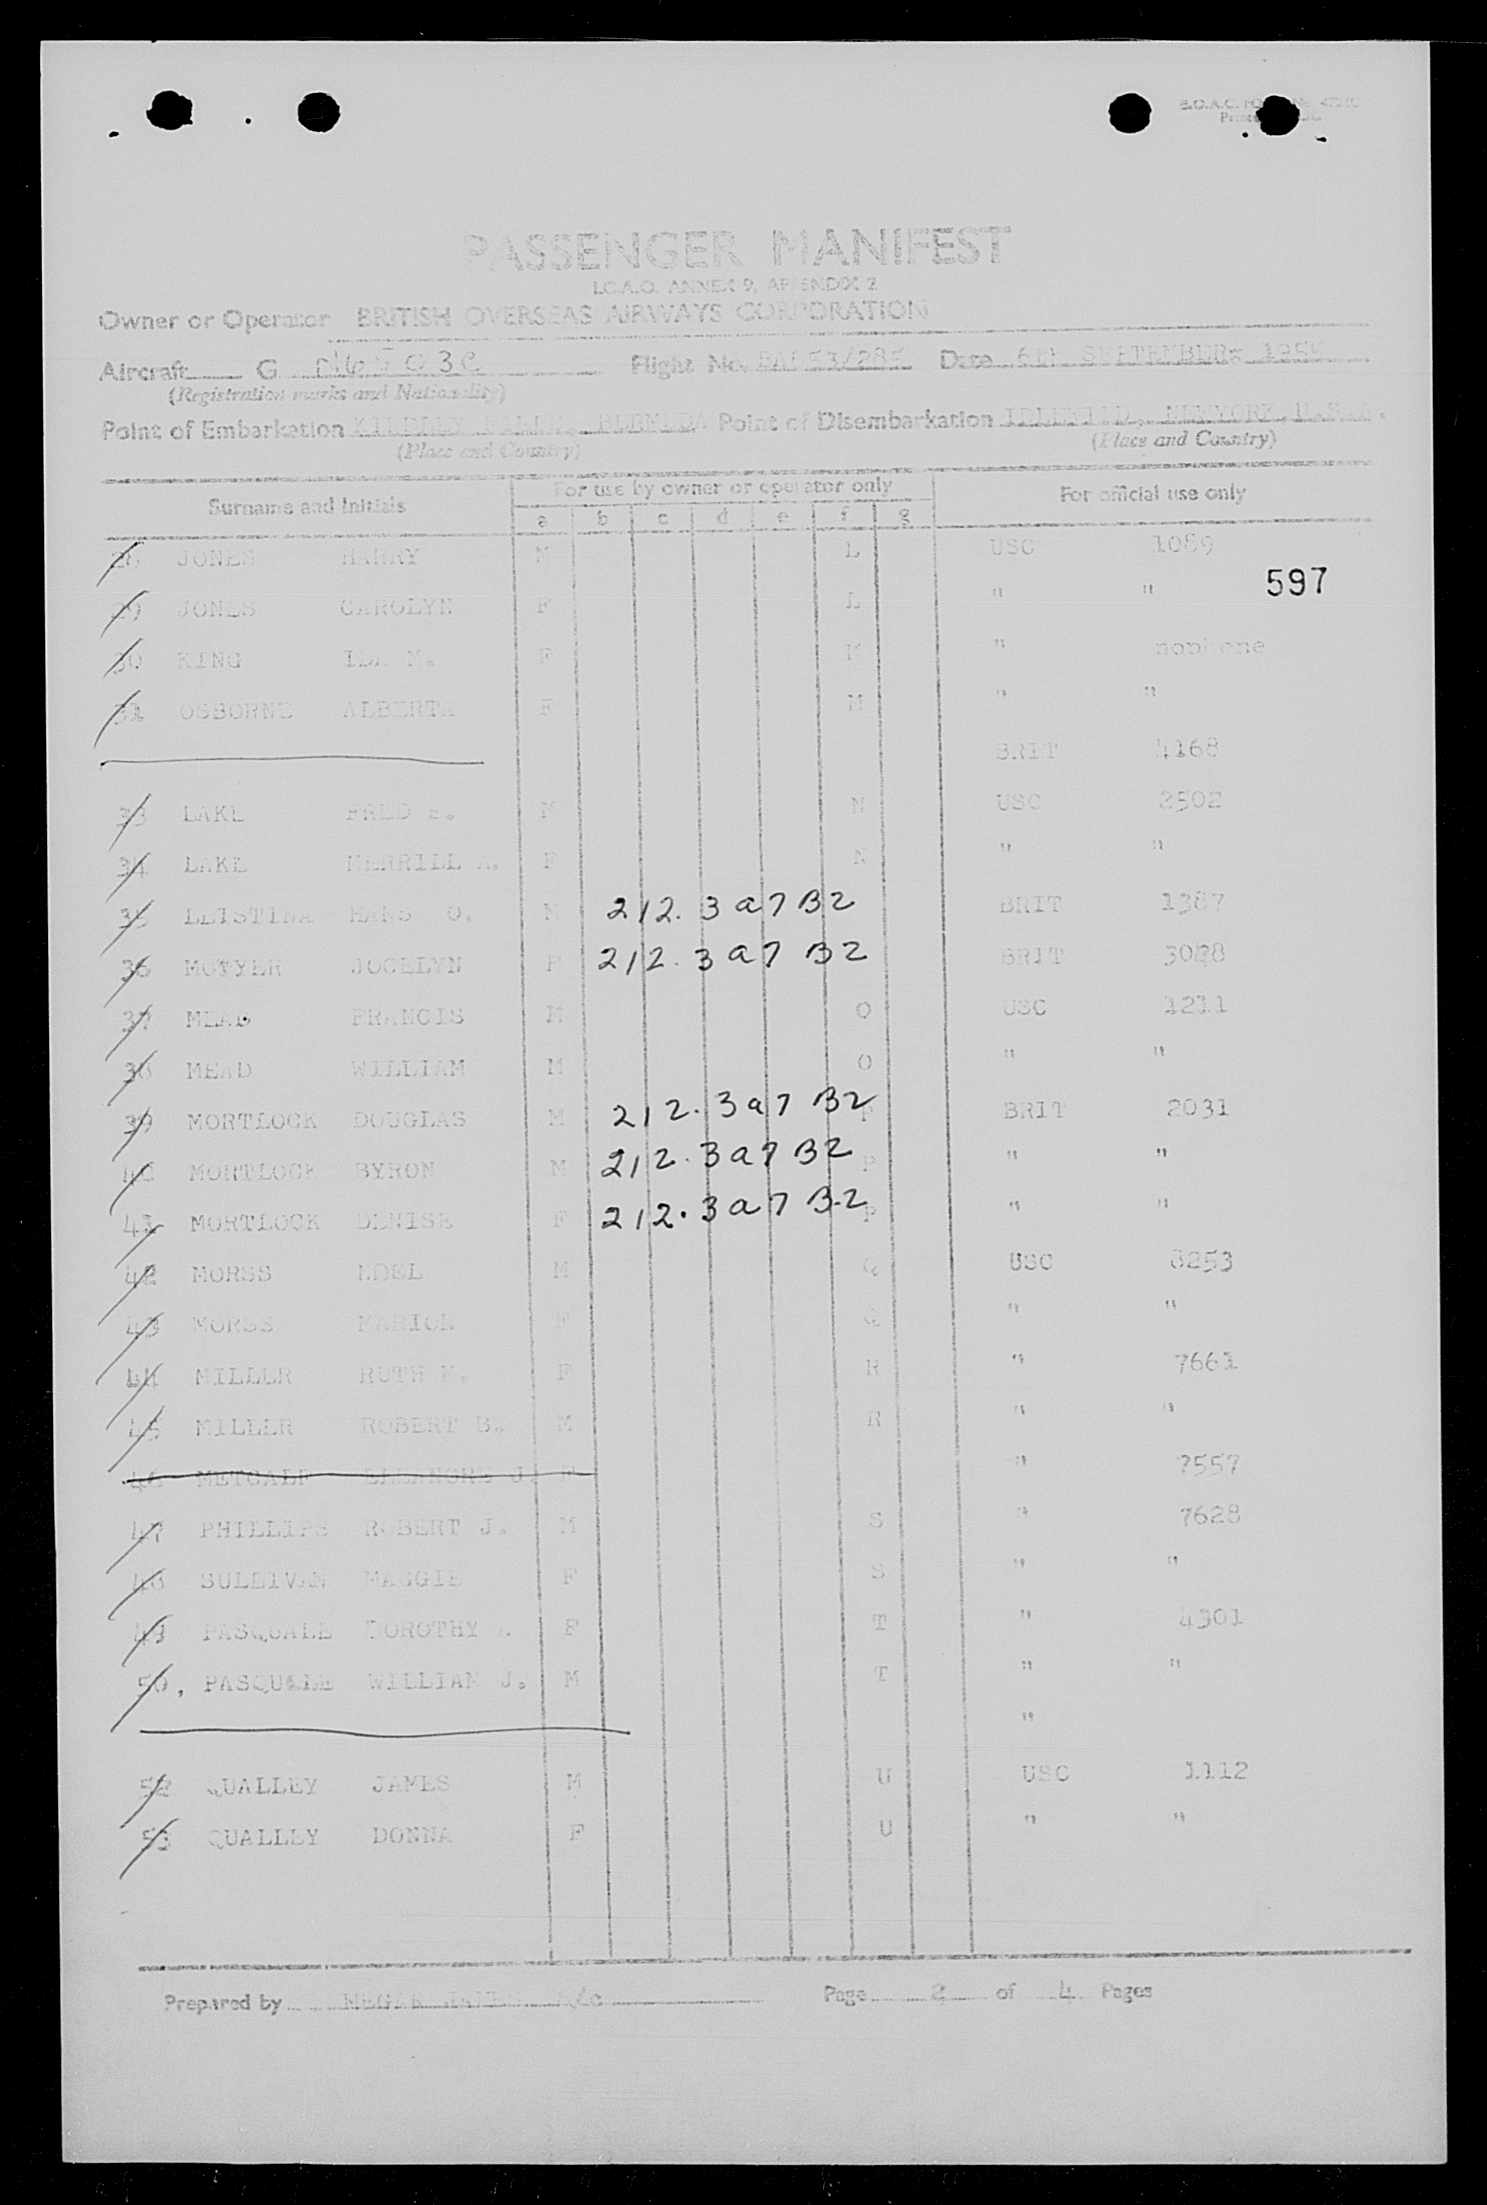 PASSENGER MANIFEST
I.C.A.O. ANNEX 9, APPENDIX 2
Owner or Operator BRITISH OVERSEAS AIRWAYS CORPORATION
Aircraft G Flight No. Date 6TH SEPTEMBER,
(Registration marks and Nationality)
Point of Embarkation KINDLEY FIELD, BERMUDA Point of Disembarkation IDLEWILD, NEWYORK, U.S.A.
(Place and Country) (Place and Country)
Surname and Initials For use by owner or operator only For official use only
a b c d e f g
28 JONES HARRY M L USC 1089
597
29 JONES CAROLYN F L " "
30 KING IDA M. F M " nophone
31 OSBORNE ALBERTA F M " "
BRIT 4168
33 LAKE FRED E. M N USC 2502
34 LAKE MERRILL A. F N " "
35 HANS O. M 212.3a7B2 BRIT 1387
36 MOTYER JOCELYN F 212.3a7 B2 BRIT
37 MEAD FRANCIS M O USC 1211
38 MEAD WILLIAM M O " "
39 MORTLOCK DOUGLAS M 212.3a7 B2 P BRIT 2031
40 MORTLOCK BYRON M 212.3a7B2 P " "
41 MORTLOCK DENISE F 212.3a7 B2 P " "
42 MORSS M Q USC 8253
43 MORSS MARION F Q " "
44 MILLER RUTH F R " 7661
45 MILLER ROBERT B. M R " "
46 METCALF ELEANORE J F " 7557
47 PHILLIPS ROBERT J. M S " 7628
48 SULLIVAN MAGGIE F S " "
49 PASQUALE DOROTHY F T " 4301
50, PASQUALE WILLIAM J. M T " "
"
52 QUALLEY JAMES M U USC 1112
53 QUALLEY DONNA F U " "
Prepared by Page 2 of 4 Pages